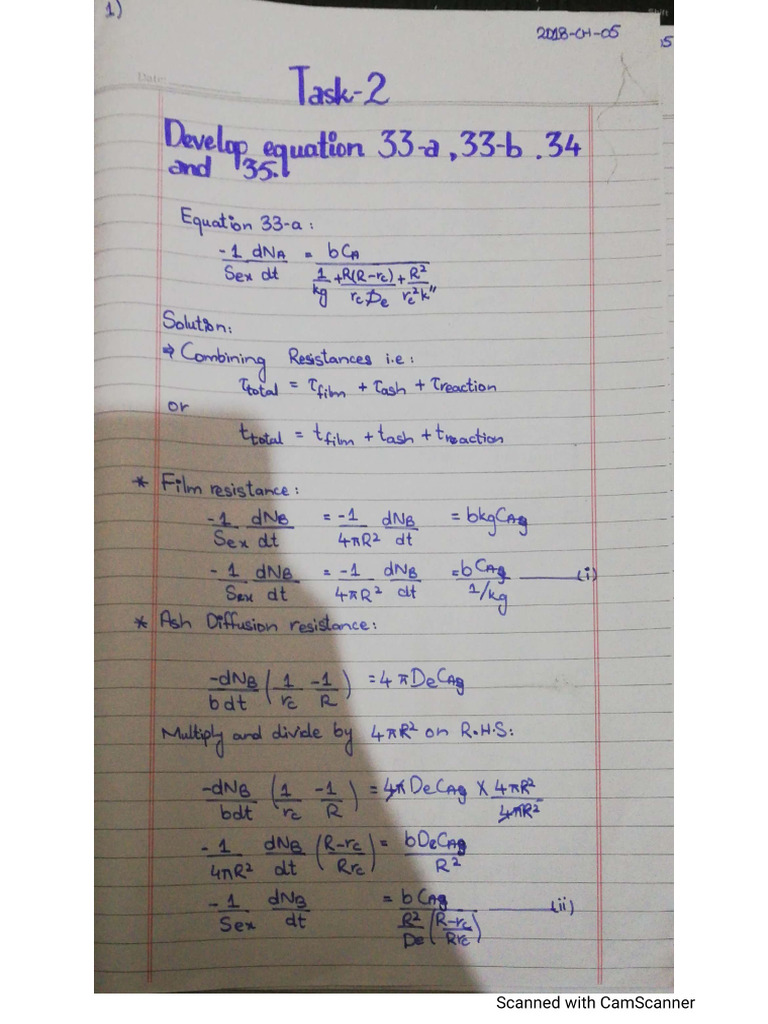 1)
2018-CH-05
Date:
Task-2
Develop equation 33-a, 33-b. 34
and 35.
Equation 33-a:
-1/Sex dNA/dt = bCA / (1/kg + R(R-rc)/rcDe + R²/rc²k")
Solution:
⇒ Combining Resistances i.e:
τtotal = τfilm + τash + τreaction
or
ttotal = tfilm + tash + treaction
* Film resistance:
-1/Sex dNB/dt = -1/4πR² dNB/dt = bkgCAg
-1/Sex dNB/dt = -1/4πR² dNB/dt = bCAg / 1/kg (i)
* Ash Diffusion resistance:
-dNB/bdt (1/rc - 1/R) = 4πDeCAg
Multiply and divide by 4πR² on R.H.S:
-dNB/bdt (1/rc - 1/R) = 4πDeCAg × 4πR²/4πR²
-1/4πR² dNB/dt (R-rc/Rrc) = bDeCAg/R²
-1/Sex dNB/dt = bCAg / R²/De (R-rc/Rrc) (ii)
Scanned with CamScanner